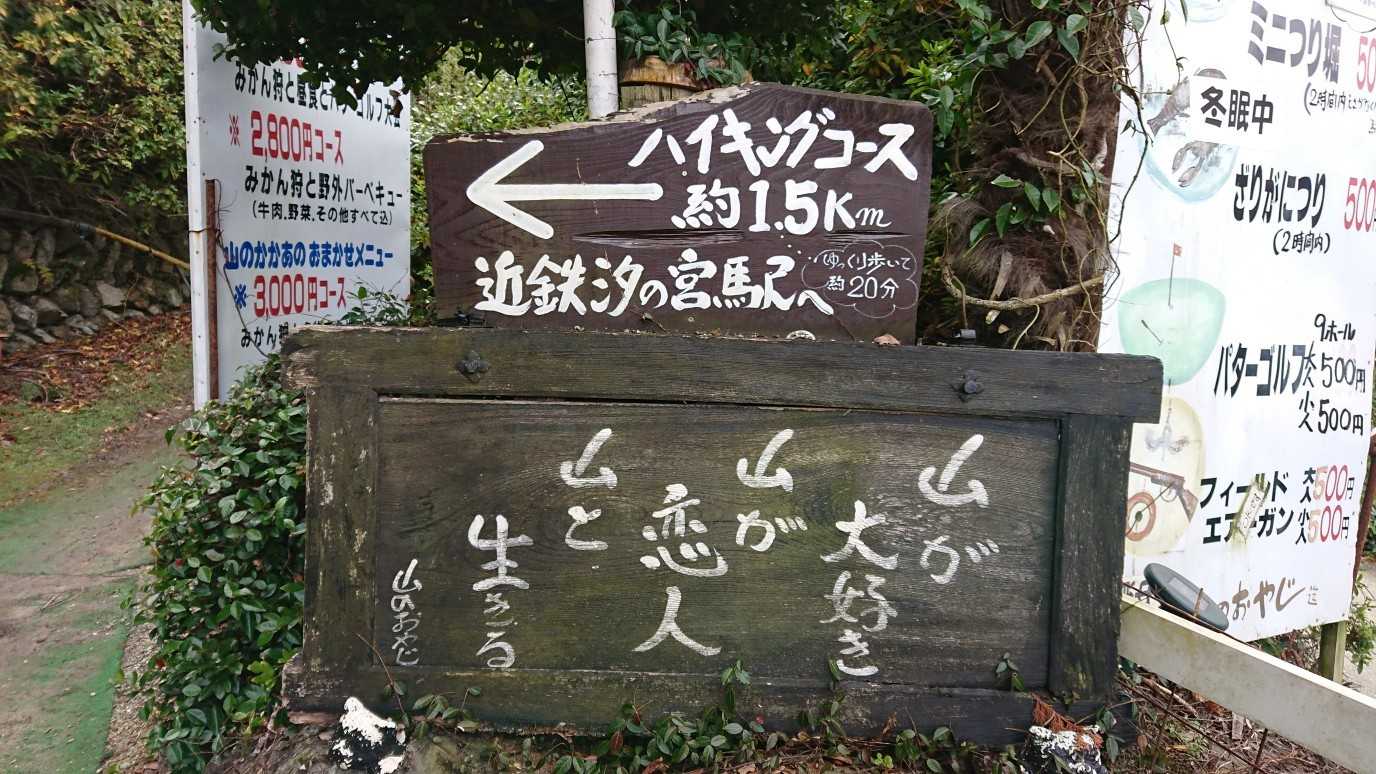 みかん狩と昼食と
※2,800円コース
みかん狩と野外バーベキュー
(牛肉,野菜,その他すべて込)
山のかかあの おまかせメニュー
※3,000円コース
みかん
ハイキングコース
約1.5Km
近鉄汐の宮馬尺へ
ゆっくり歩いて
約20分
山が
大好き
山が
恋人
山と
生きる
山のおやじ
ミニつり堀
(2時間内
冬眠中
ざりがにつり
(2時間内)
9ホール
パターゴルフ 大500円
小500円
フィールド 大500円
エアーガン 小500円
おやじ